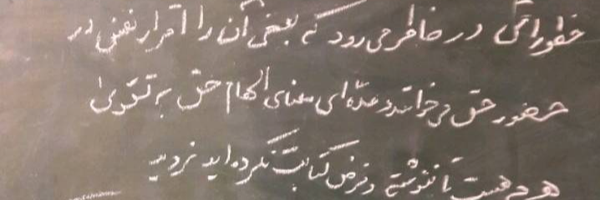 خطوراتی در خاطر می رود که بعضی آن را اقرار نفس در
حضور حق می خوانند و عده ای معنای الهام حق به تقوی
هر چه هست تا ننوشته و فرض کتابت نکرده اید نزدیک